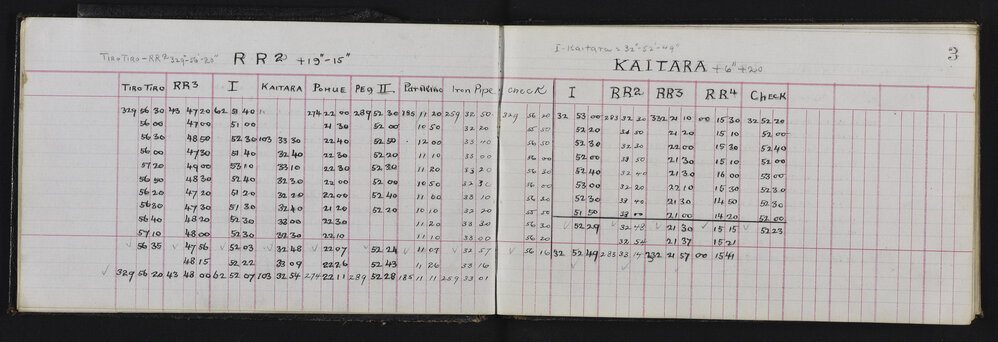 TIRO TIRO - RR2 329°-56'-20" RR2 +19"-15"
TIRO TIRO RR3 I KAITARA POHUE PEG II Iron Pipe CHECK
329 56 30 43 47 20 62 51 40 274 22 00 289 52 30 185 11 20 259 32 50 329 56 20
56 00 47 00 51 00 21 30 52 00 10 50 32 20 55 50
56 30 48 50 52 30 103 33 30 22 40 52 50 12 00 33 40 56 50
56 00 47 30 51 40 32 40 22 30 52 20 11 10 33 00 56 00
57 20 49 00 53 10 33 10 22 30 52 30 11 20 33 20 56 30
56 50 48 30 52 40 32 30 22 00 52 00 10 50 32 30 56 00
56 20 47 20 51 20 32 20 22 00 52 40 11 00 33 10 56 20
56 30 47 30 51 30 32 40 21 20 52 20 10 10 32 20 55 50
56 40 48 20 52 30 33 00 22 30 11 20 33 30 56 30
57 10 48 00 52 30 32 30 22 10 11 10 33 00 56 20
✓ 56 35 ✓ 47 56 ✓ 52 03 ✓ 32 48 ✓ 22 07 ✓ 52 24 ✓ 11 07 ✓ 32 57 ✓ 56 16
48 15 52 22 33 09 22 26 52 43 11 26 33 16
✓ 329 56 20 43 48 00 62 52 07 103 32 54 274 22 11 289 52 28 185 11 11 259 33 01
I - Kaitara = 32°-52'-49"
3
KAITARA +6" +20
I RR2 RR3 RR4 CHECK
32 53 00 283 32 30 332 21 10 00 15 30 32 52 20
52 20 32 50 21 20 15 10 52 00
52 30 32 30 22 00 15 30 52 40
52 00 32 50 21 30 15 10 52 00
52 40 32 40 21 30 16 00 53 00
53 00 32 20 22 10 15 30 52 30
52 30 32 40 21 30 14 50 52 30
51 50 33 00 21 00 14 20 52 00
✓ 52 29 ✓ 32 48 ✓ 21 30 ✓ 15 15 ✓ 52 23
32 54 21 37 15 21
32 52 49 283 33 14 332 21 57 00 15 41